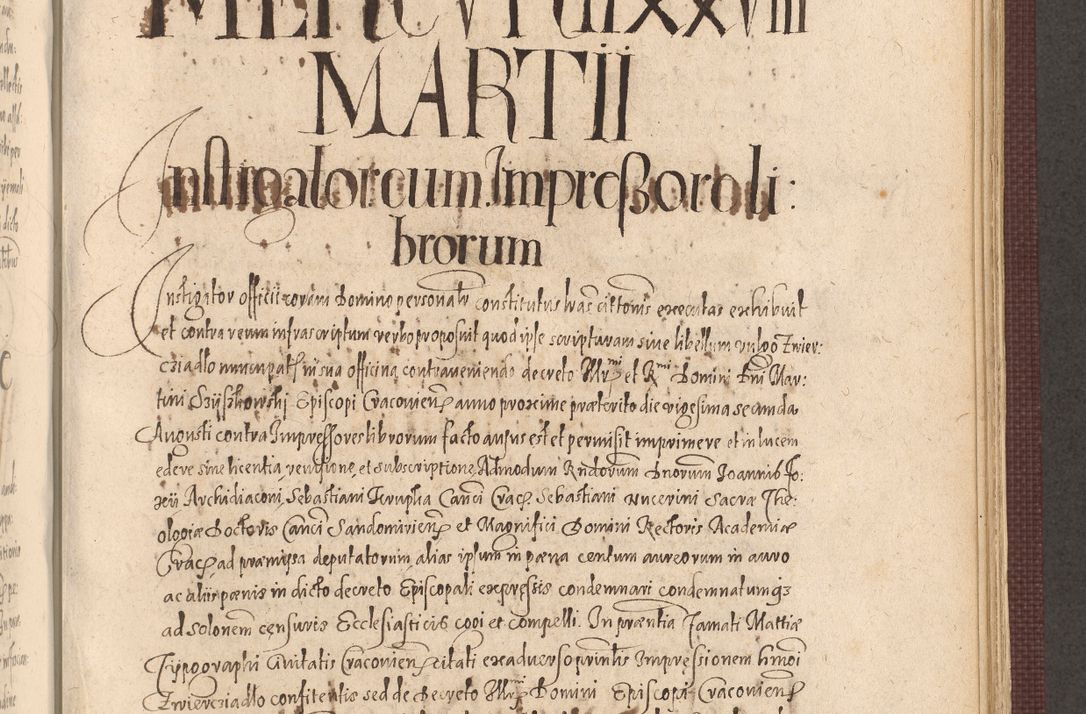 MERCVRII XXVIII
MARTII
Instigator cum Impreßore li:
brorum
Instigator officii coram Domino personalr constitutus lras cittonis executas exhibuit
et contra reum infrascriptum verbo proposuit quod ipse scripturam sive libellum vulgo Zwier:
cziadlo nuncupat in sua officina contraveniendo decreto Illr mi et R mi Domini Dni Mar:
tini Szÿszkowski Episcopi Cracovien anno proxime præterito die vigesima secunda
Augusti contra Impressores librorum facto ausus est et permisit imprimere et in lucem
edere sine licentia, revisione, et subscriptione Admodum Rndorum Dnorum Joannis Fo:
xii Archidiaconi, Sebastiani Krupka Canci Crac, Sebastiani Nucerini Sacræ The:
ologiæ Doctoris Canci Sandomirien et Magnifici Domini Rectoris Academiæ
Crac, ad præmissa deputatorum, alias ipsum in pæna centum aureorum in auro
ac aliis pænis in dicto decreto Episcopali expressis condemnari condemnatumq3
ad solonem censuris Ecclesiasticis cogi et compelli. In præntia famati Mattiæ
Typographi Civitatis Cracovien citati ex adverso printis Impressionem hmoi
Zwiercziadlo confitentis sed de Decreto Illr mi Domini Episcopi Cracovien